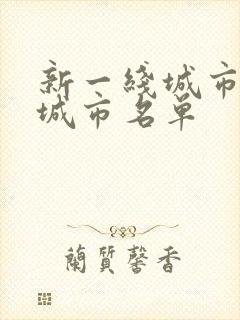 新一綫城市
城市名单
蘭質馨香